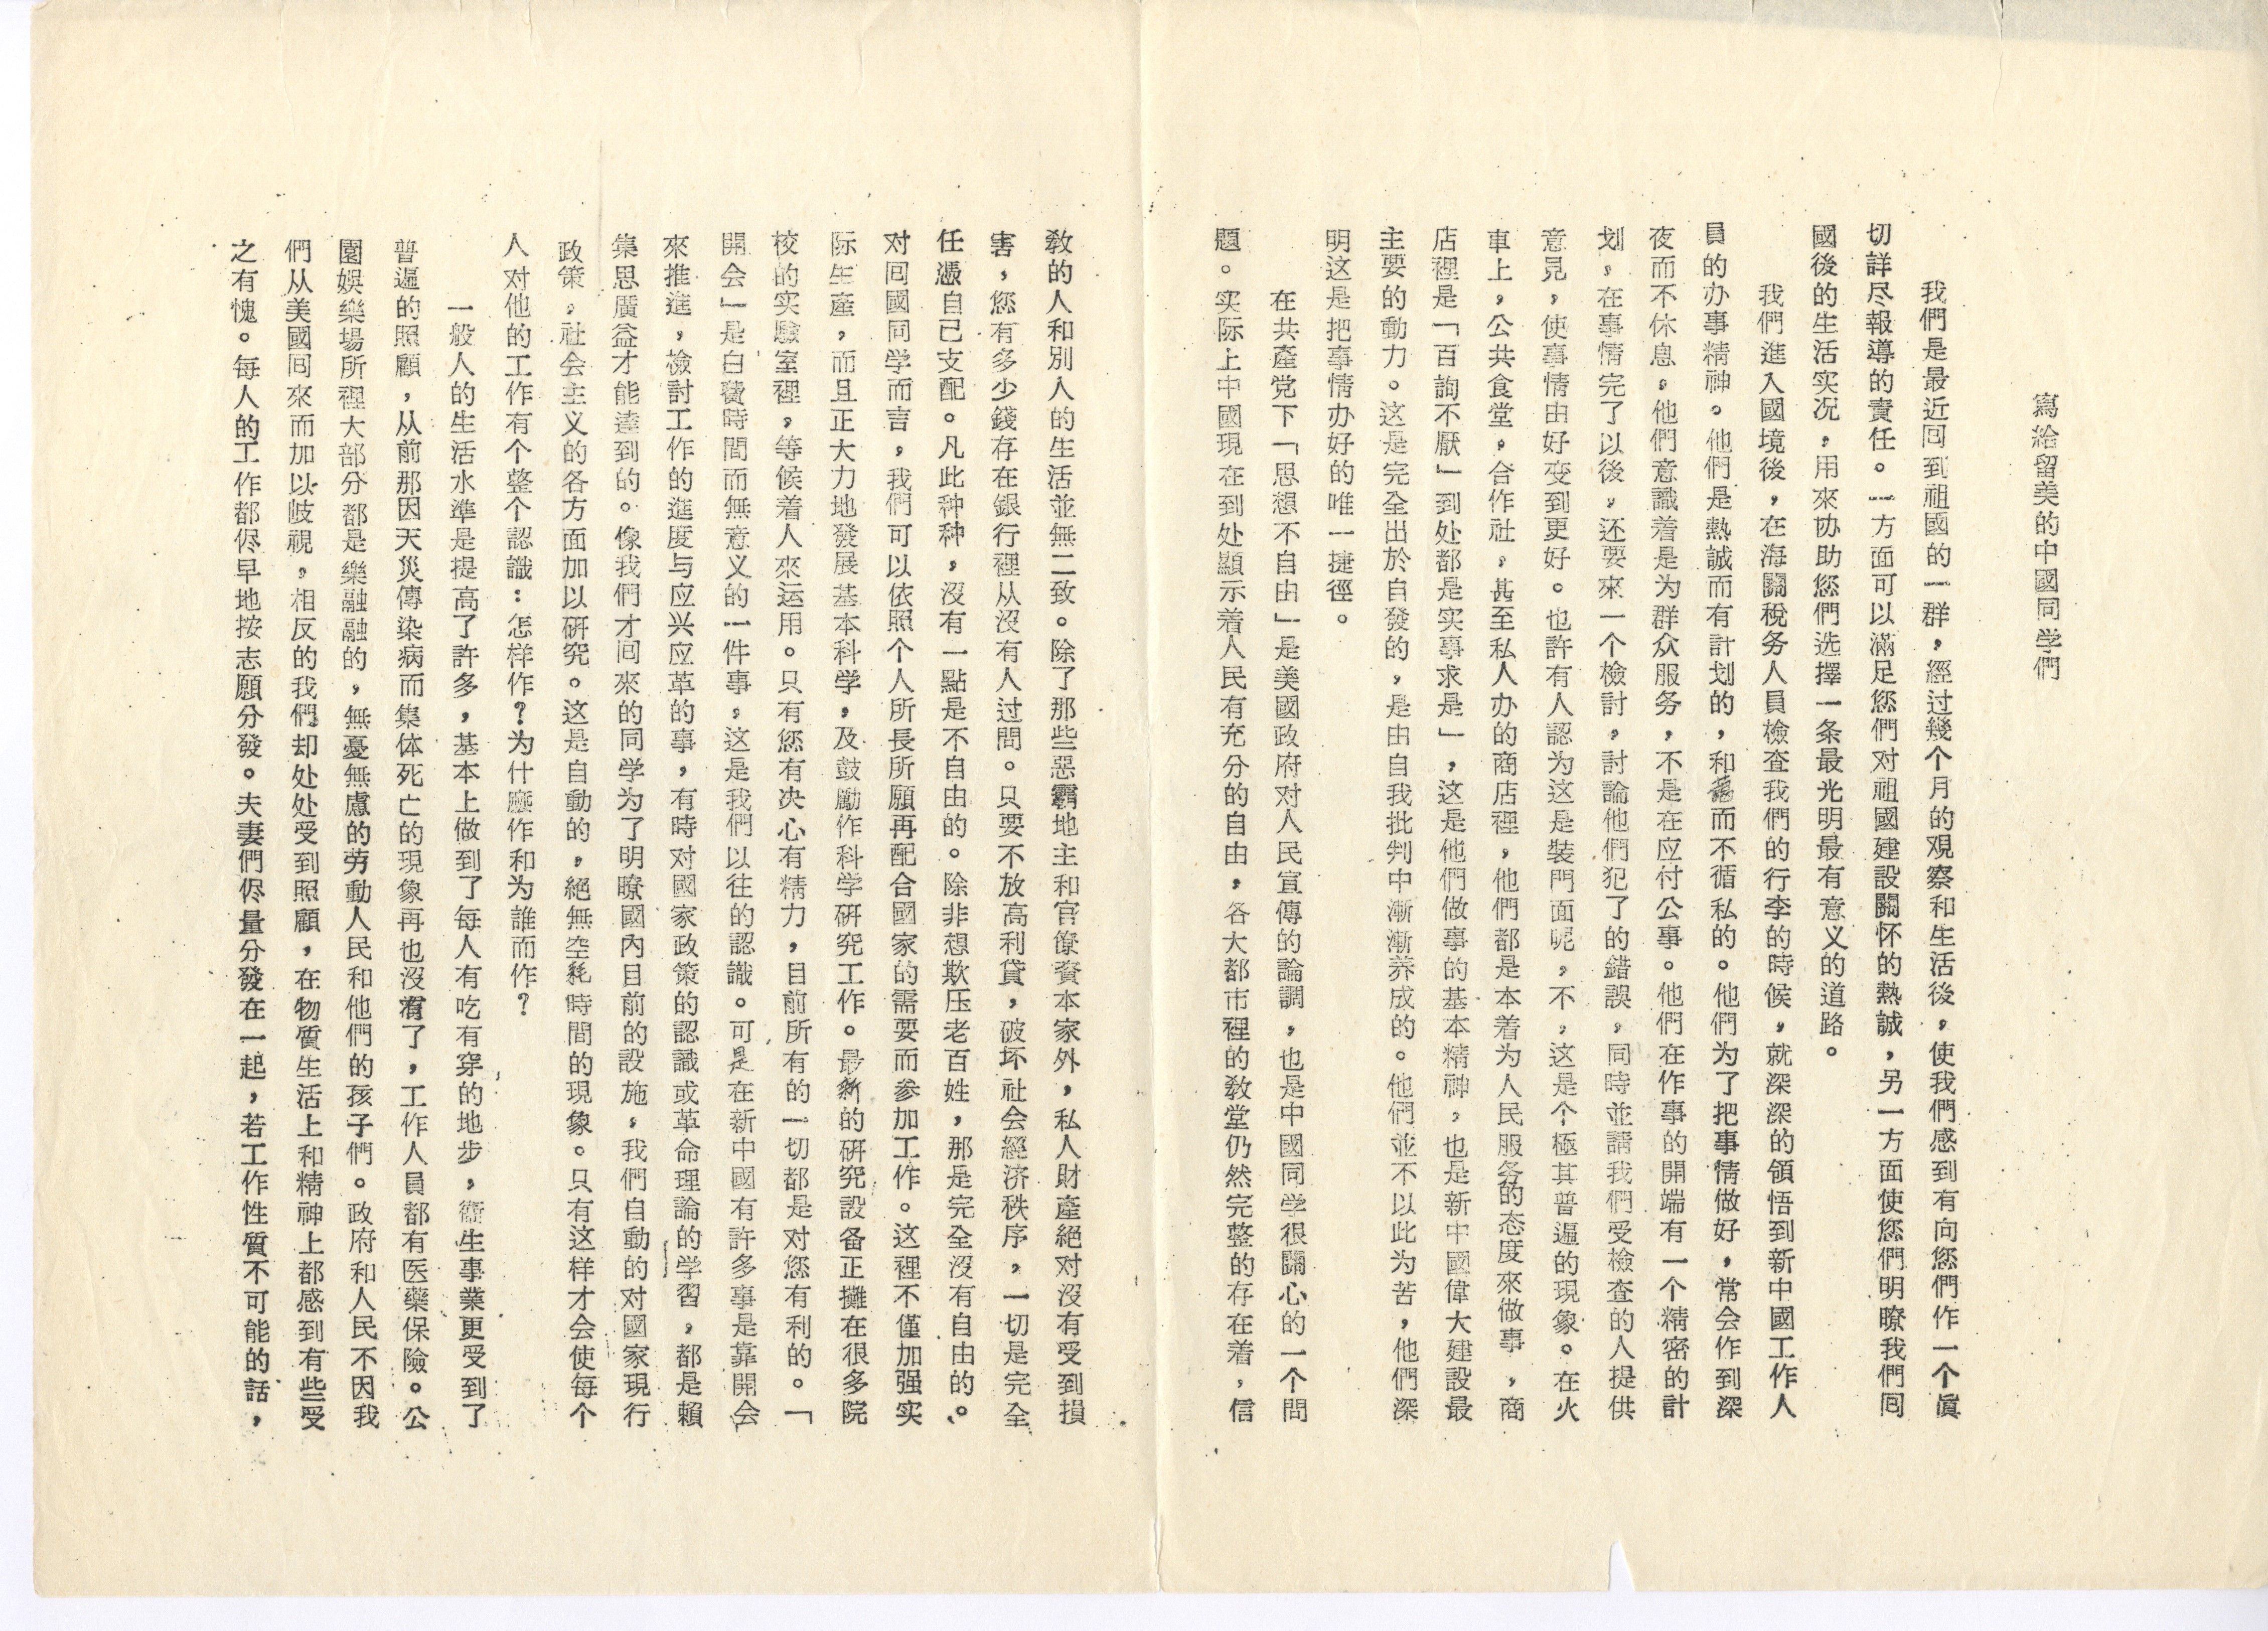 寫給留美的中國同学們
我們是最近回到祖國的一群，經过幾个月的观察和生活後，使我們感到有向您們作一个眞
切詳尽報導的責任。一方面可以滿足您們对祖國建設關怀的熱誠，另一方面使您們明瞭我們回
國後的生活实况，用來协助您們选擇一条最光明最有意义的道路。
我們進入國境後，在海關稅务人員檢查我們的行李的時候，就深深的領悟到新中國工作人
員的办事精神。他們是熱誠而有計划的，和而不循私的。他們为了把事情做好，常会作到深
夜而不休息，他們意識着是为群众服务，不是在应付公事。他們在作事的開端有一个精密的計
划，在事情完了以後，还要來一个檢討，討論他們犯了的錯誤，同時並請我們受檢查的人提供
意見，使事情由好变到更好。也許有人認为这是裝門面呢，不，这是个極其普遍的現象。在火
車上，公共食堂，合作社，甚至私人办的商店裡，他們都是本着为人民服务的态度來做事，商
店裡是「百詢不厭」到处都是实事求是」，这是他們做事的基本精神，也是新中國偉大建設最
主要的動力。这是完全出於自發的，是由自我批判中漸漸养成的。他們並不以此为苦，他們深
明这是把事情办好的唯一捷徑。
在共產党下「思想不自由」是美國政府对人民宣傳的論調，也是中國同学很關心的一个問
題。实际上中國現在到处顯示着人民有充分的自由，各大都市裡的敎堂仍然完整的存在着，信
敎的人和別人的生活並無二致。除了那些惡霸地主和官僚資本家外，私人財產絕对沒有受到損
害，您有多少錢存在銀行裡从沒有人过問。只要不放高利貸，破坏社会經济秩序，一切是完全
任憑自己支配。凡此种种，沒有一點是不自由的。除非想欺压老百姓，那是完全沒有自由的。
对回國同学而言，我們可以依照个人所長所願再配合國家的需要而参加工作。这裡不僅加强实
际生產，而且正大力地發展基本科学，及鼓勵作科学研究工作。最新的研究設备正攤在很多院
校的实驗室裡，等候着人來运用。只有您有决心有精力，目前所有的一切都是对您有利的。「
開会」是白費時間而無意义的一件事，这是我們以往的認識。可是在新中國有許多事是靠開会
來推進，檢討工作的進度与应兴应革的事，有時对國家政策的認識或革命理論的学習，都是賴
集思廣益才能達到的。像我們才回來的同学为了明瞭國內目前的設施，我們自動的对國家現行
政策，社会主义的各方面加以研究。这是自動的，絕無空耗時間的現象。只有这样才会使每个
人对他的工作有个整个認識：怎样作？为什麽作和为誰而作？
一般人的生活水準是提高了許多，基本上做到了每人有吃有穿的地步，衞生事業更受到了
普遍的照顧，从前那因天災傳染病而集体死亡的現象再也沒有了，工作人員都有医藥保險。公
園娛樂場所裡大部分都是樂融融的，無憂無慮的劳動人民和他們的孩子們。政府和人民不因我
們从美國回來而加以歧視，相反的我們却处处受到照顧，在物質生活上和精神上都感到有些受
之有愧。每人的工作都侭早地按志願分發。夫妻們侭量分發在一起，若工作性質不可能的話，